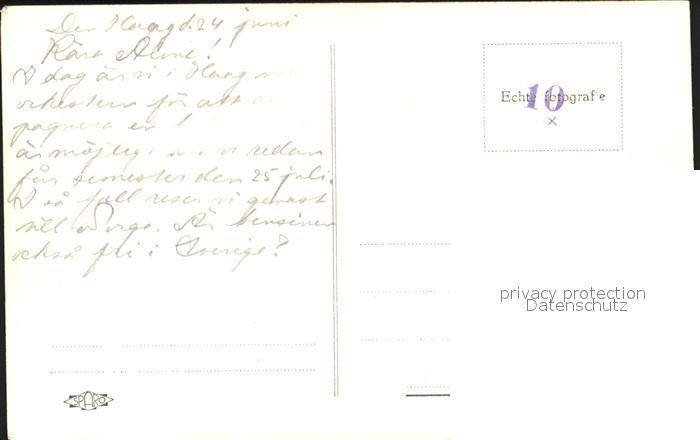 Den Haag d. 24 juni
Kära Alme!
I dag är vi i Haag me
orkestern för att ac
pagnera en
är möjlig vi redan
får semester den 25 juli.
I så fall reser vi genast
till Norge. Är bensinen
också fri i Sverige?
Echte fotografie
10
x
privacy protection
Datenschutz
SPARO